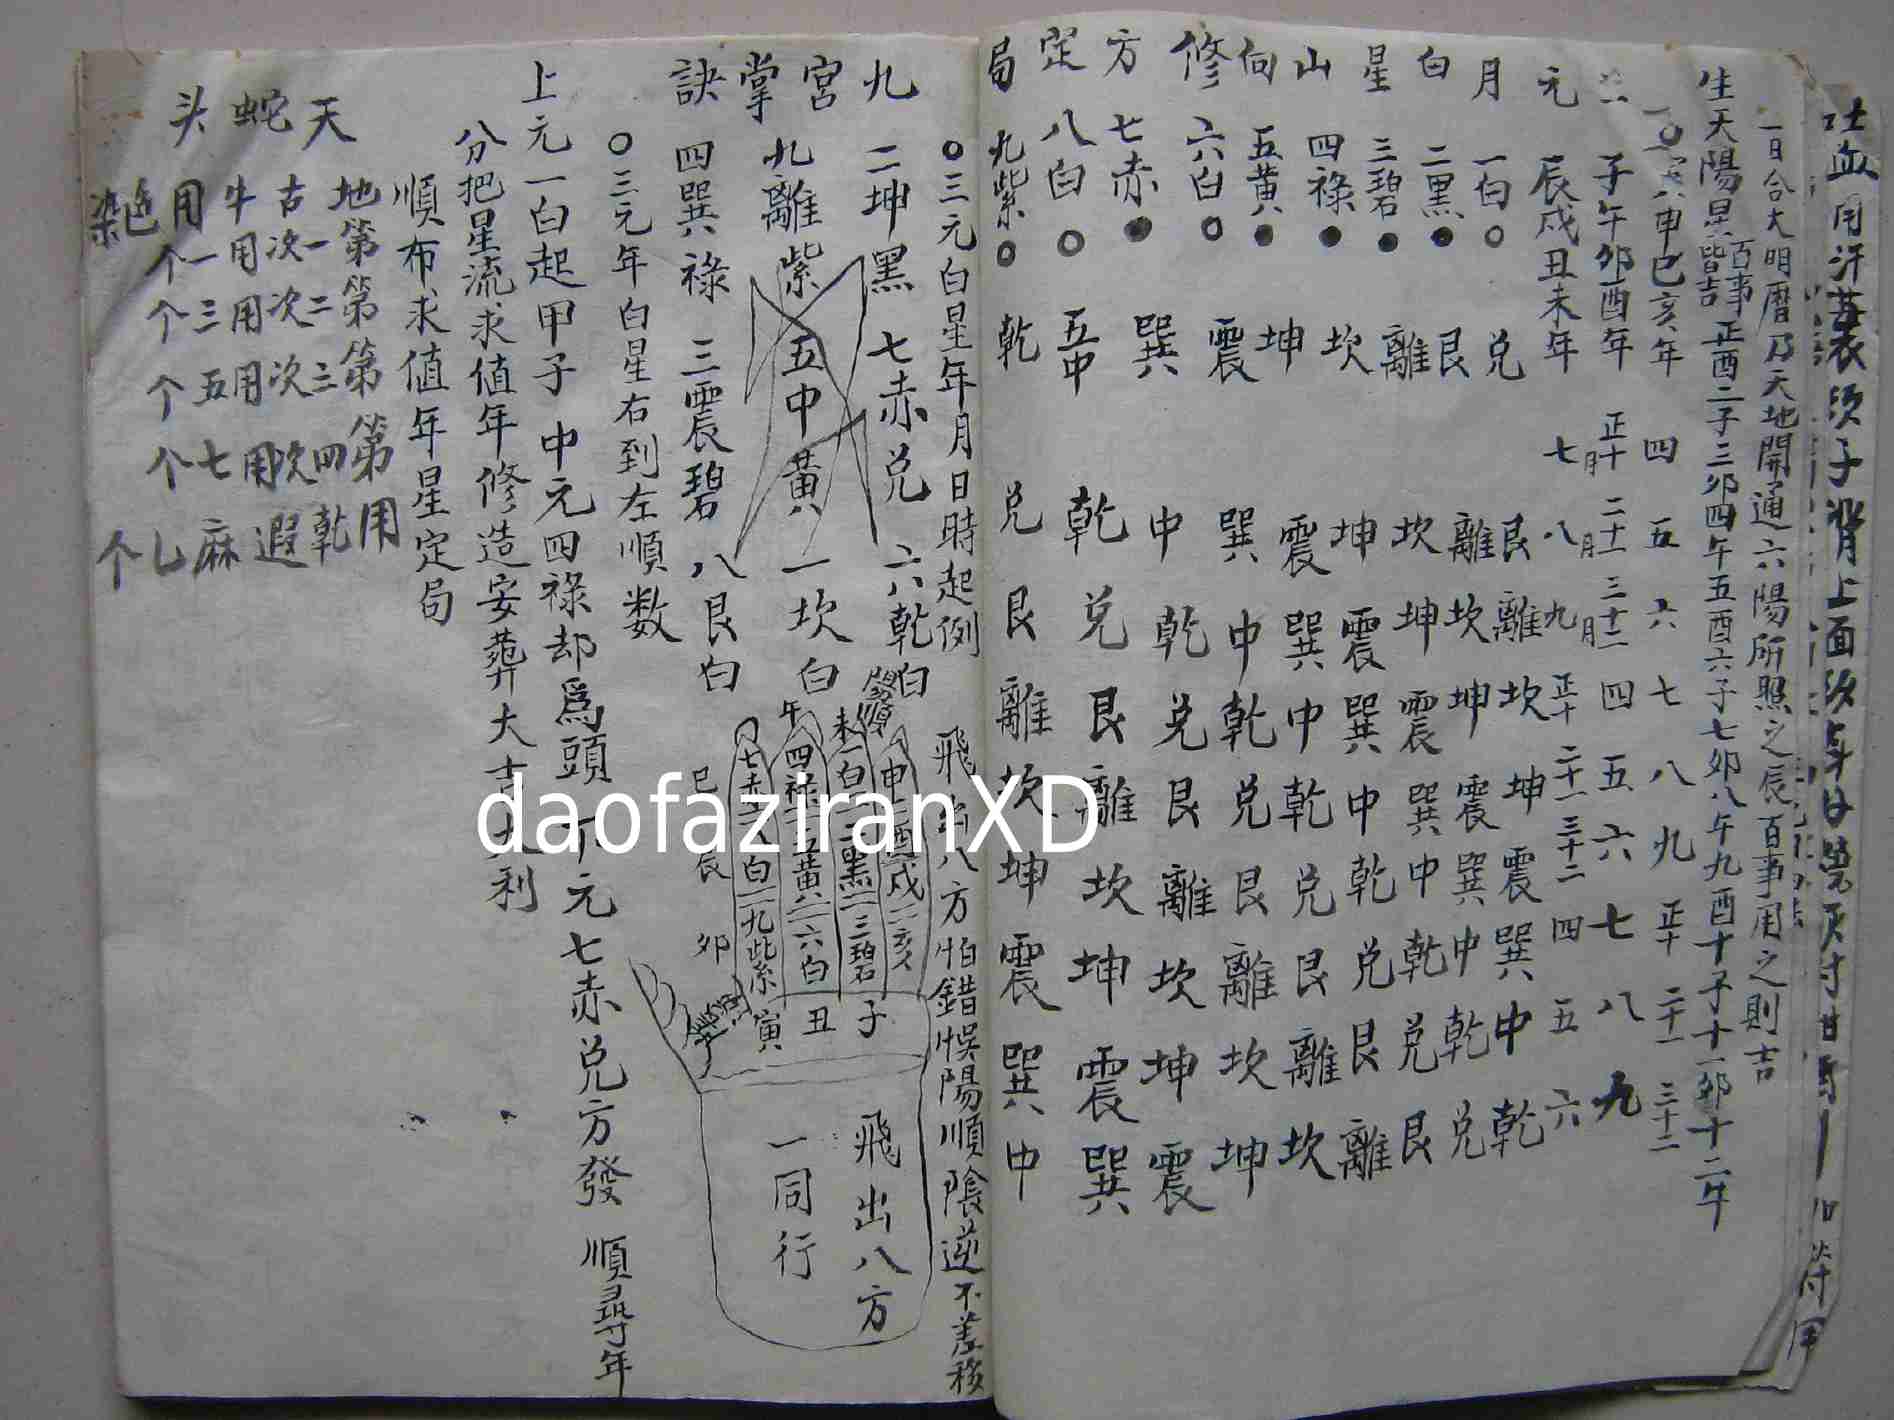 生天陽星皆吉 正酉二子三卯四午五酉六子七卯八午九酉十子十一卯十二午
百事
一日合大明曆乃天地開通六陽所照之辰百事用之則吉
三元月白星山向修方定局
寅申巳亥年
子午卯酉年
辰戌丑未年
四 五 六 七 八 九 正十 二十一 三十二
正十月 二十一月 三十二月 四 五 六 七 八 九
七 八 九 正十 二十一 三十二 四 五 六
一白○ 兌 艮 離 坎 坤 震 巽 中 乾
二黑● 艮 離 坎 坤 震 巽 中 乾 兌
三碧● 離 坎 坤 震 巽 中 乾 兌 艮
四祿● 坎 坤 震 巽 中 乾 兌 艮 離
五黃● 坤 震 巽 中 乾 兌 艮 離 坎
六白○ 震 巽 中 乾 兌 艮 離 坎 坤
七赤● 巽 中 乾 兌 艮 離 坎 坤 震
八白○ 五中 乾 兌 艮 離 坎 坤 震 巽
九紫○ 乾 兌 艮 離 坎 坤 震 巽 中
○三元白星年月日時起例 飛出八方怕錯悞陽順陰逆不差移
九宮掌訣
二坤黑 七赤兌 六乾白
九離紫 五中黃 一坎白
四巽祿 三震碧 八艮白
陽順
申 酉 戌 亥
未 一白 二黑 三碧 子
午 四祿 五黃 六白 丑
七赤 八白 九紫 寅
巳 辰 卯
飛出八方
一同行
○三元年白星右到左順数
上元一白起甲子 中元四祿却為頭 下元七赤兌方發 順尋年
分把星流求值年修造安葬大吉大利
順布求值年星定局
天蛇头
地古牛用 染色
第一次用一个
第二次用三个
第三次用五个
第四次用七个
用乾遐麻乚个
daofaziranXD